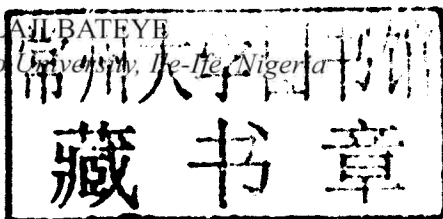 A. ILBATEYE
o University, Ile-Ife, Nigeria
常州大学图书馆
藏书章